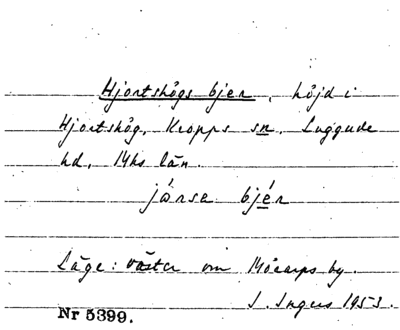 Hjortshögs bjer, höjd i
Hjortshög, Kropps sn. Luggude
hd, Mhs län.
jårsa bjér
Läge: väster om Mörarps by.
I. Ingers 1953.
Nr 5399.